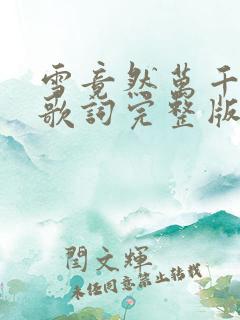 雪竟然萬千
歌詞完整版
閆文輝
未经同意禁止转载